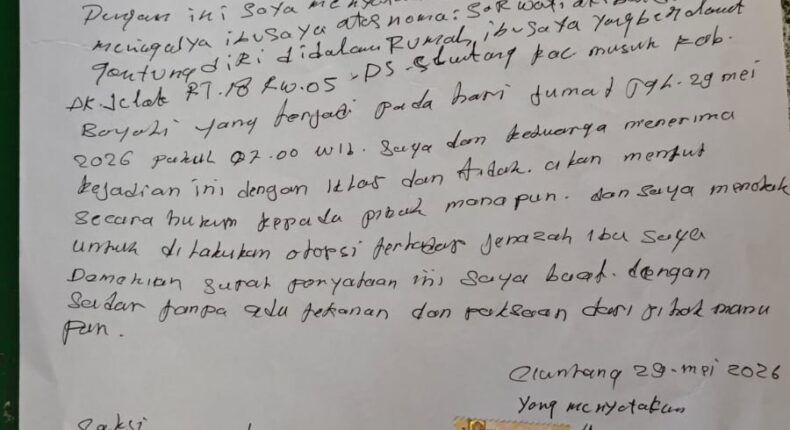 Dengan ini saya
meninggalya ibu saya atas nama: Sarwati
gantung diri didalam Rumah, ibu saya yang beralamat
DK. Jelok RT. 18 RW. 05 - DS kec musuk kab.
Boyolali yang terjadi pada hari jumat tgl. 29 mei
2026 pukul 07.00 WIB. saya dan keduarga menerima
kejadian ini dengan iklas dan tidak. akan mentut
secara hukum kepada pihak manapun. dan saya menolak
untuk dilakukan otopsi terhadap jenazah ibu saya
Demekian surat penyataan ini saya buat. dengan
sadar tanpa ada tekanan dan paksaan dari pihak mana
pun.
29-mei 2026
Yang menyatakan
Saksi